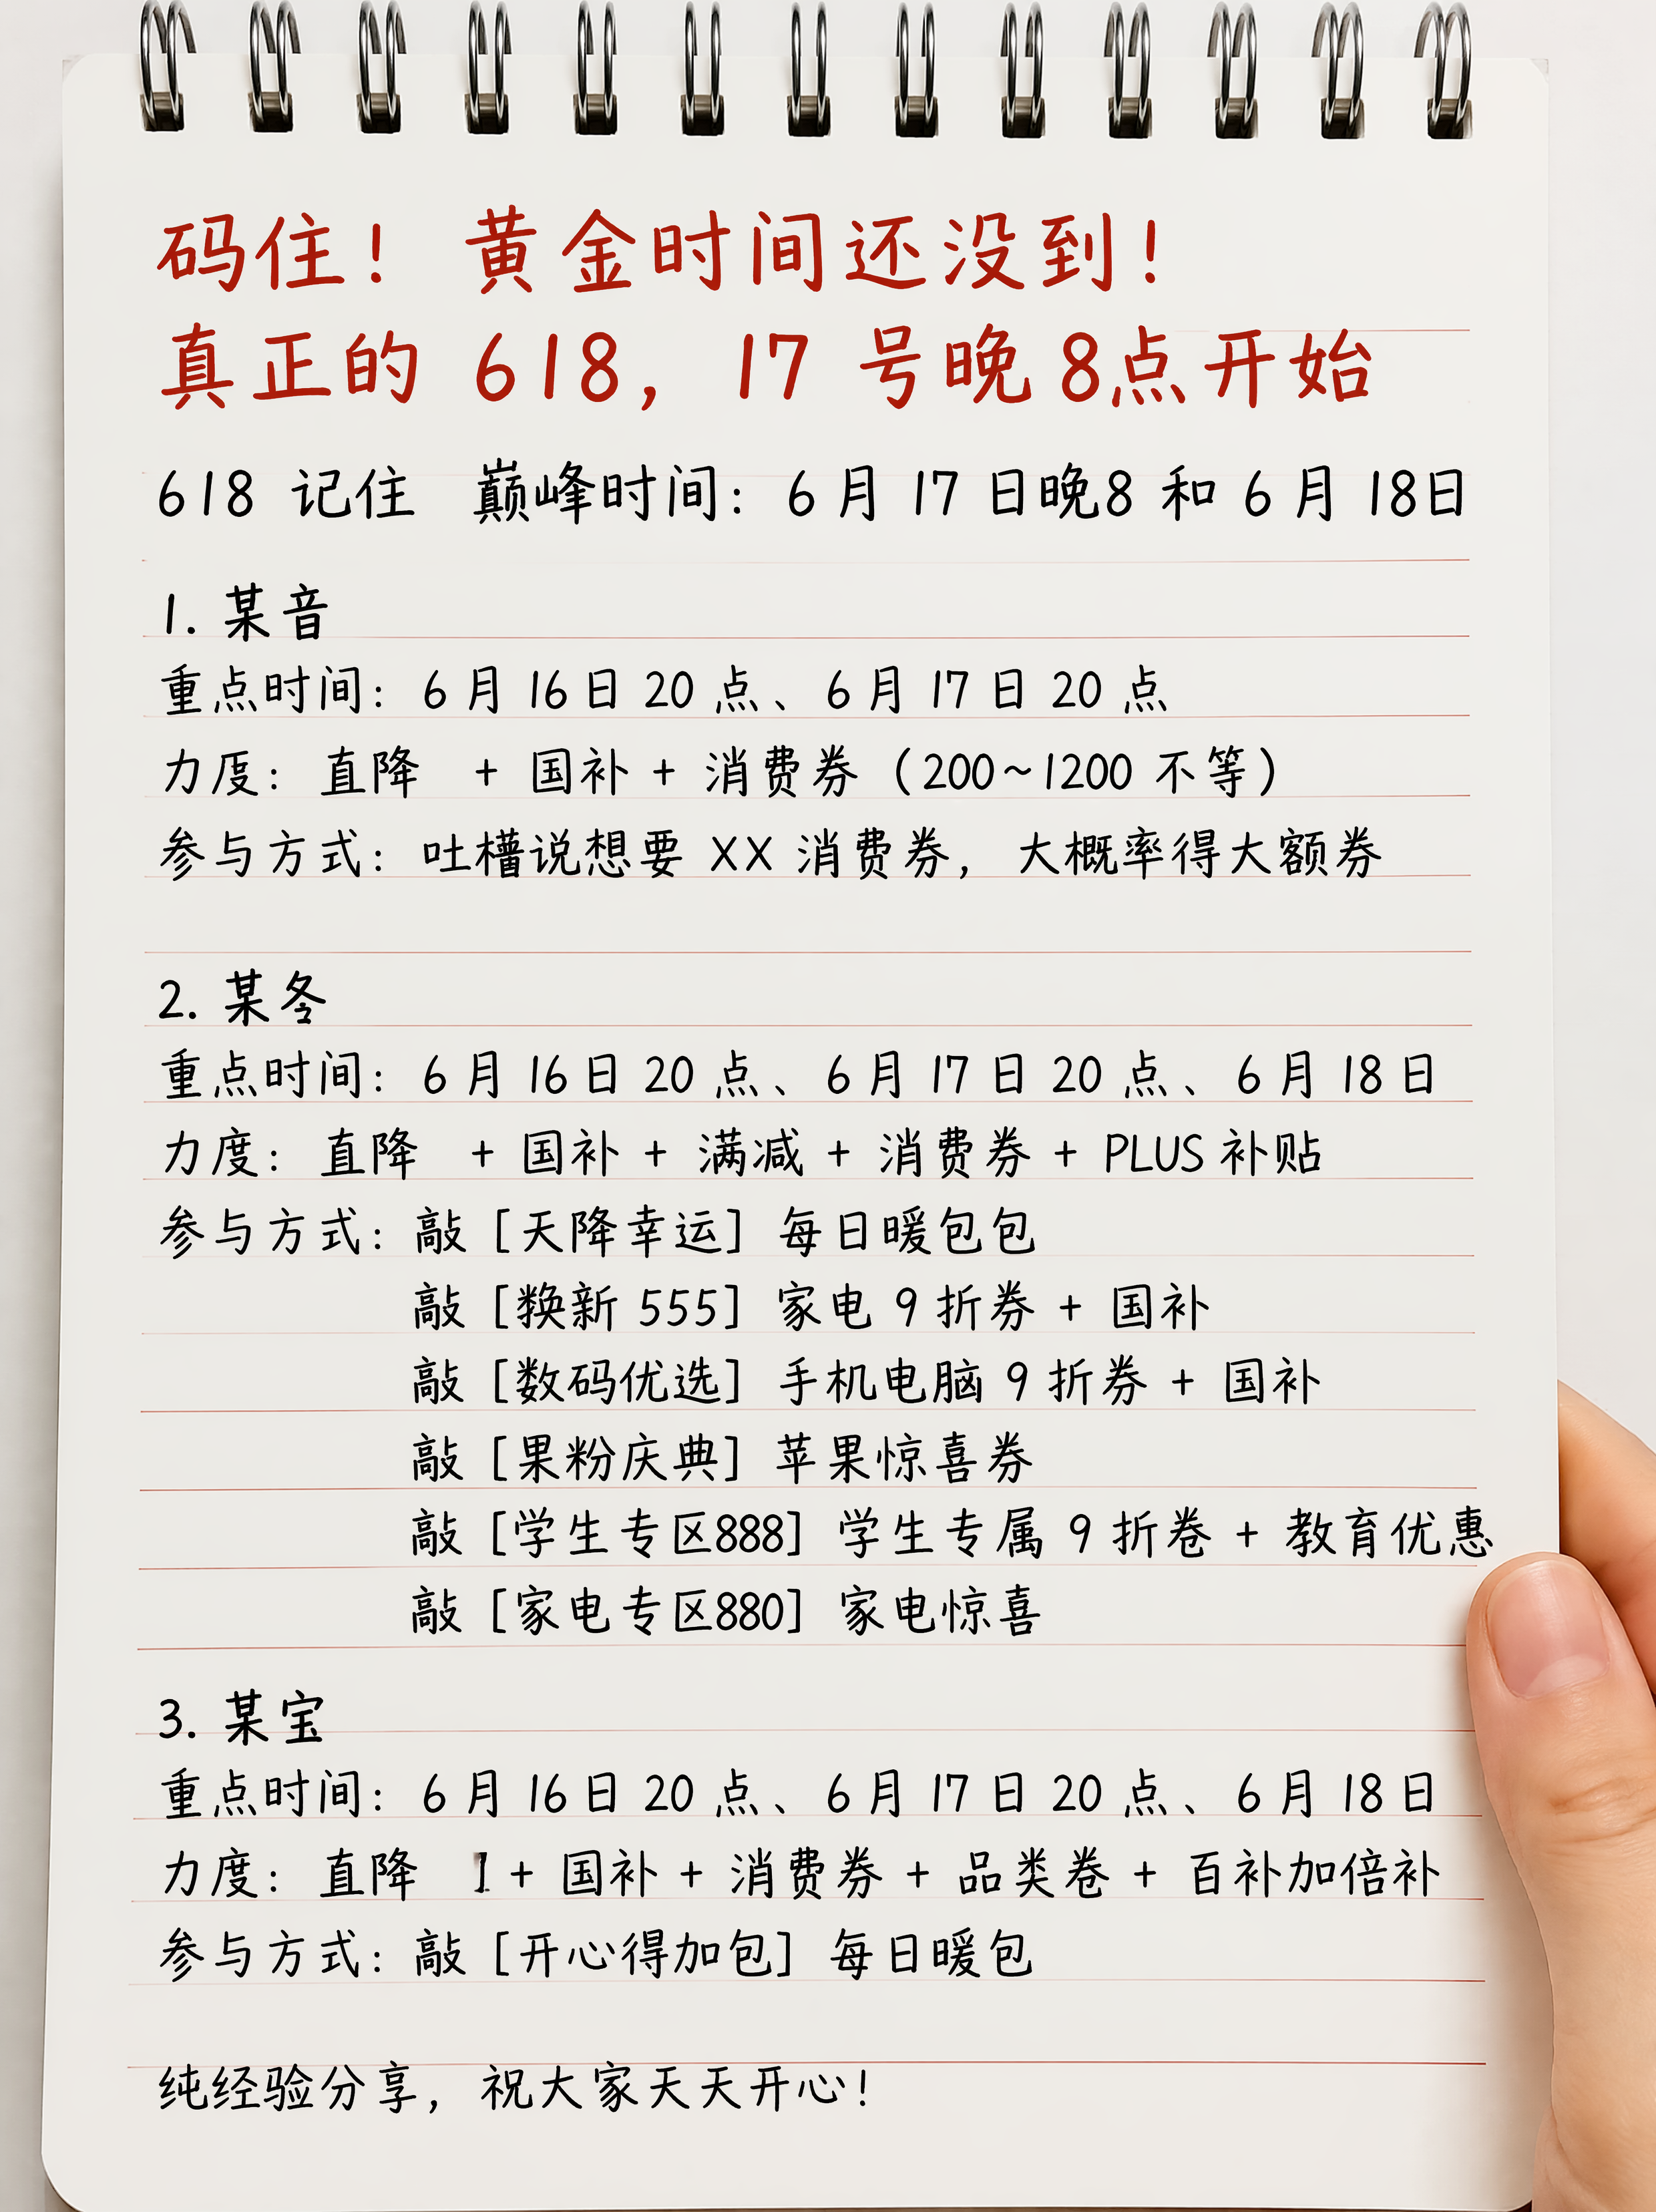 码住！黄金时间还没到！
真正的 618，17 号晚 8点开始
618 记住 巅峰时间：6 月 17 日晚8 和 6 月 18日
1. 某音
重点时间：6 月 16日 20 点、6 月 17 日 20 点
力度：直降 + 国补 + 消费券（200~1200 不等）
参与方式：吐槽说想要 XX 消费券，大概率得大额券
2. 某冬
重点时间：6 月 16日 20 点、6 月 17 日 20 点、6 月 18 日
力度：直降 + 国补 + 满减 + 消费券 + PLUS 补贴
参与方式：敲 [天降幸运] 每日暖包包
敲 [换新 555] 家电 9 折券 + 国补
敲 [数码优选] 手机电脑 9 折券 + 国补
敲 [果粉庆典] 苹果惊喜券
敲 [学生专区888] 学生专属 9 折卷 + 教育优惠
敲 [家电专区880] 家电惊喜
3. 某宝
重点时间：6 月 16日 20 点、6 月 17 日 20 点、6 月 18 日
力度：直降 + 国补 + 消费券 + 品类卷 + 百补加倍补
参与方式：敲 [开心得加包] 每日暖包
纯经验分享，祝大家天天开心！